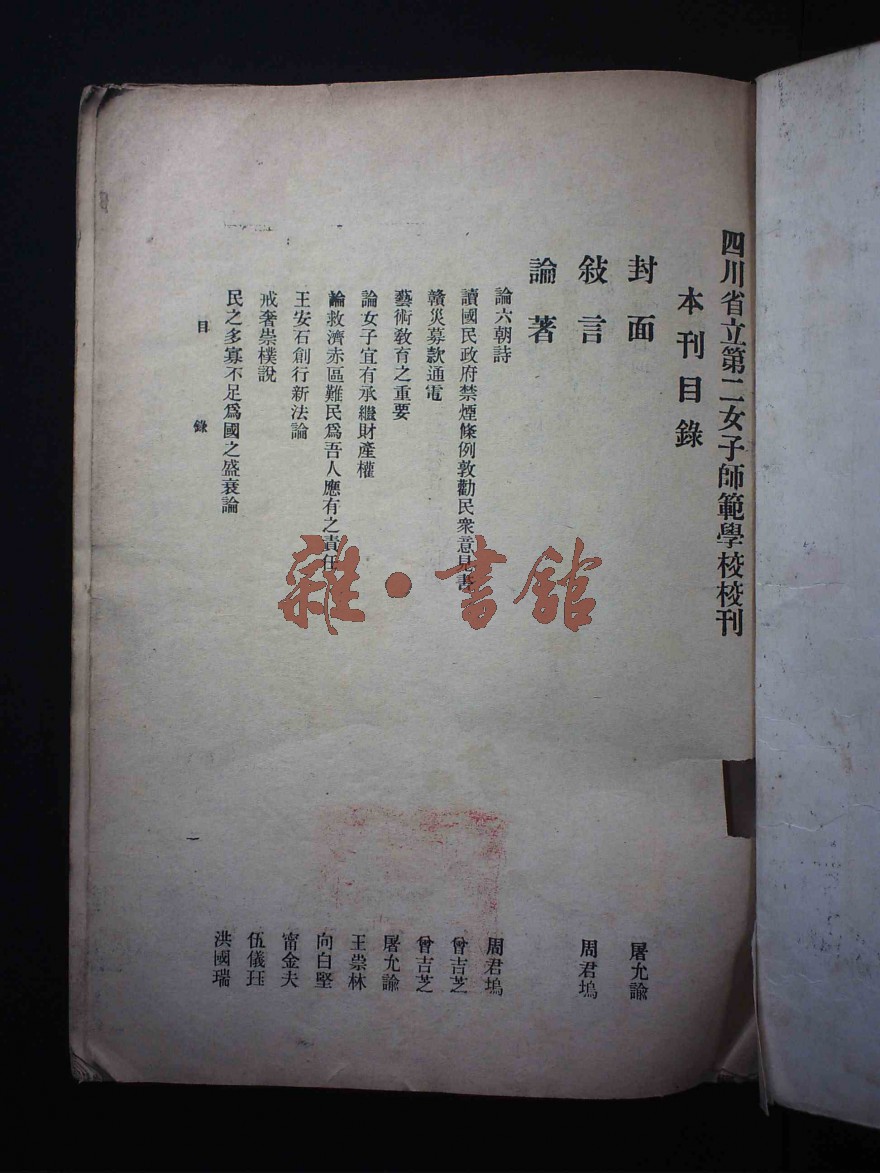 四川省立第二女子師範學校校刊
本刊目錄
封面 屠允諭
敍言 周君塢
論著
論六朝詩 周君塢
讀國民政府禁煙條例敦勸民衆意見書 曾吉芝
贛災募款通電 曾吉芝
藝術教育之重要 屠允諭
論女子宜有承繼財產權 王崇林
論救濟赤區難民爲吾人應有之責任 向白堅
王安石創行新法論 甯金夫
戒奢崇樸說 伍儀珏
民之多寡不足爲國之盛衰論 洪國瑞
目錄
一
雜·書館